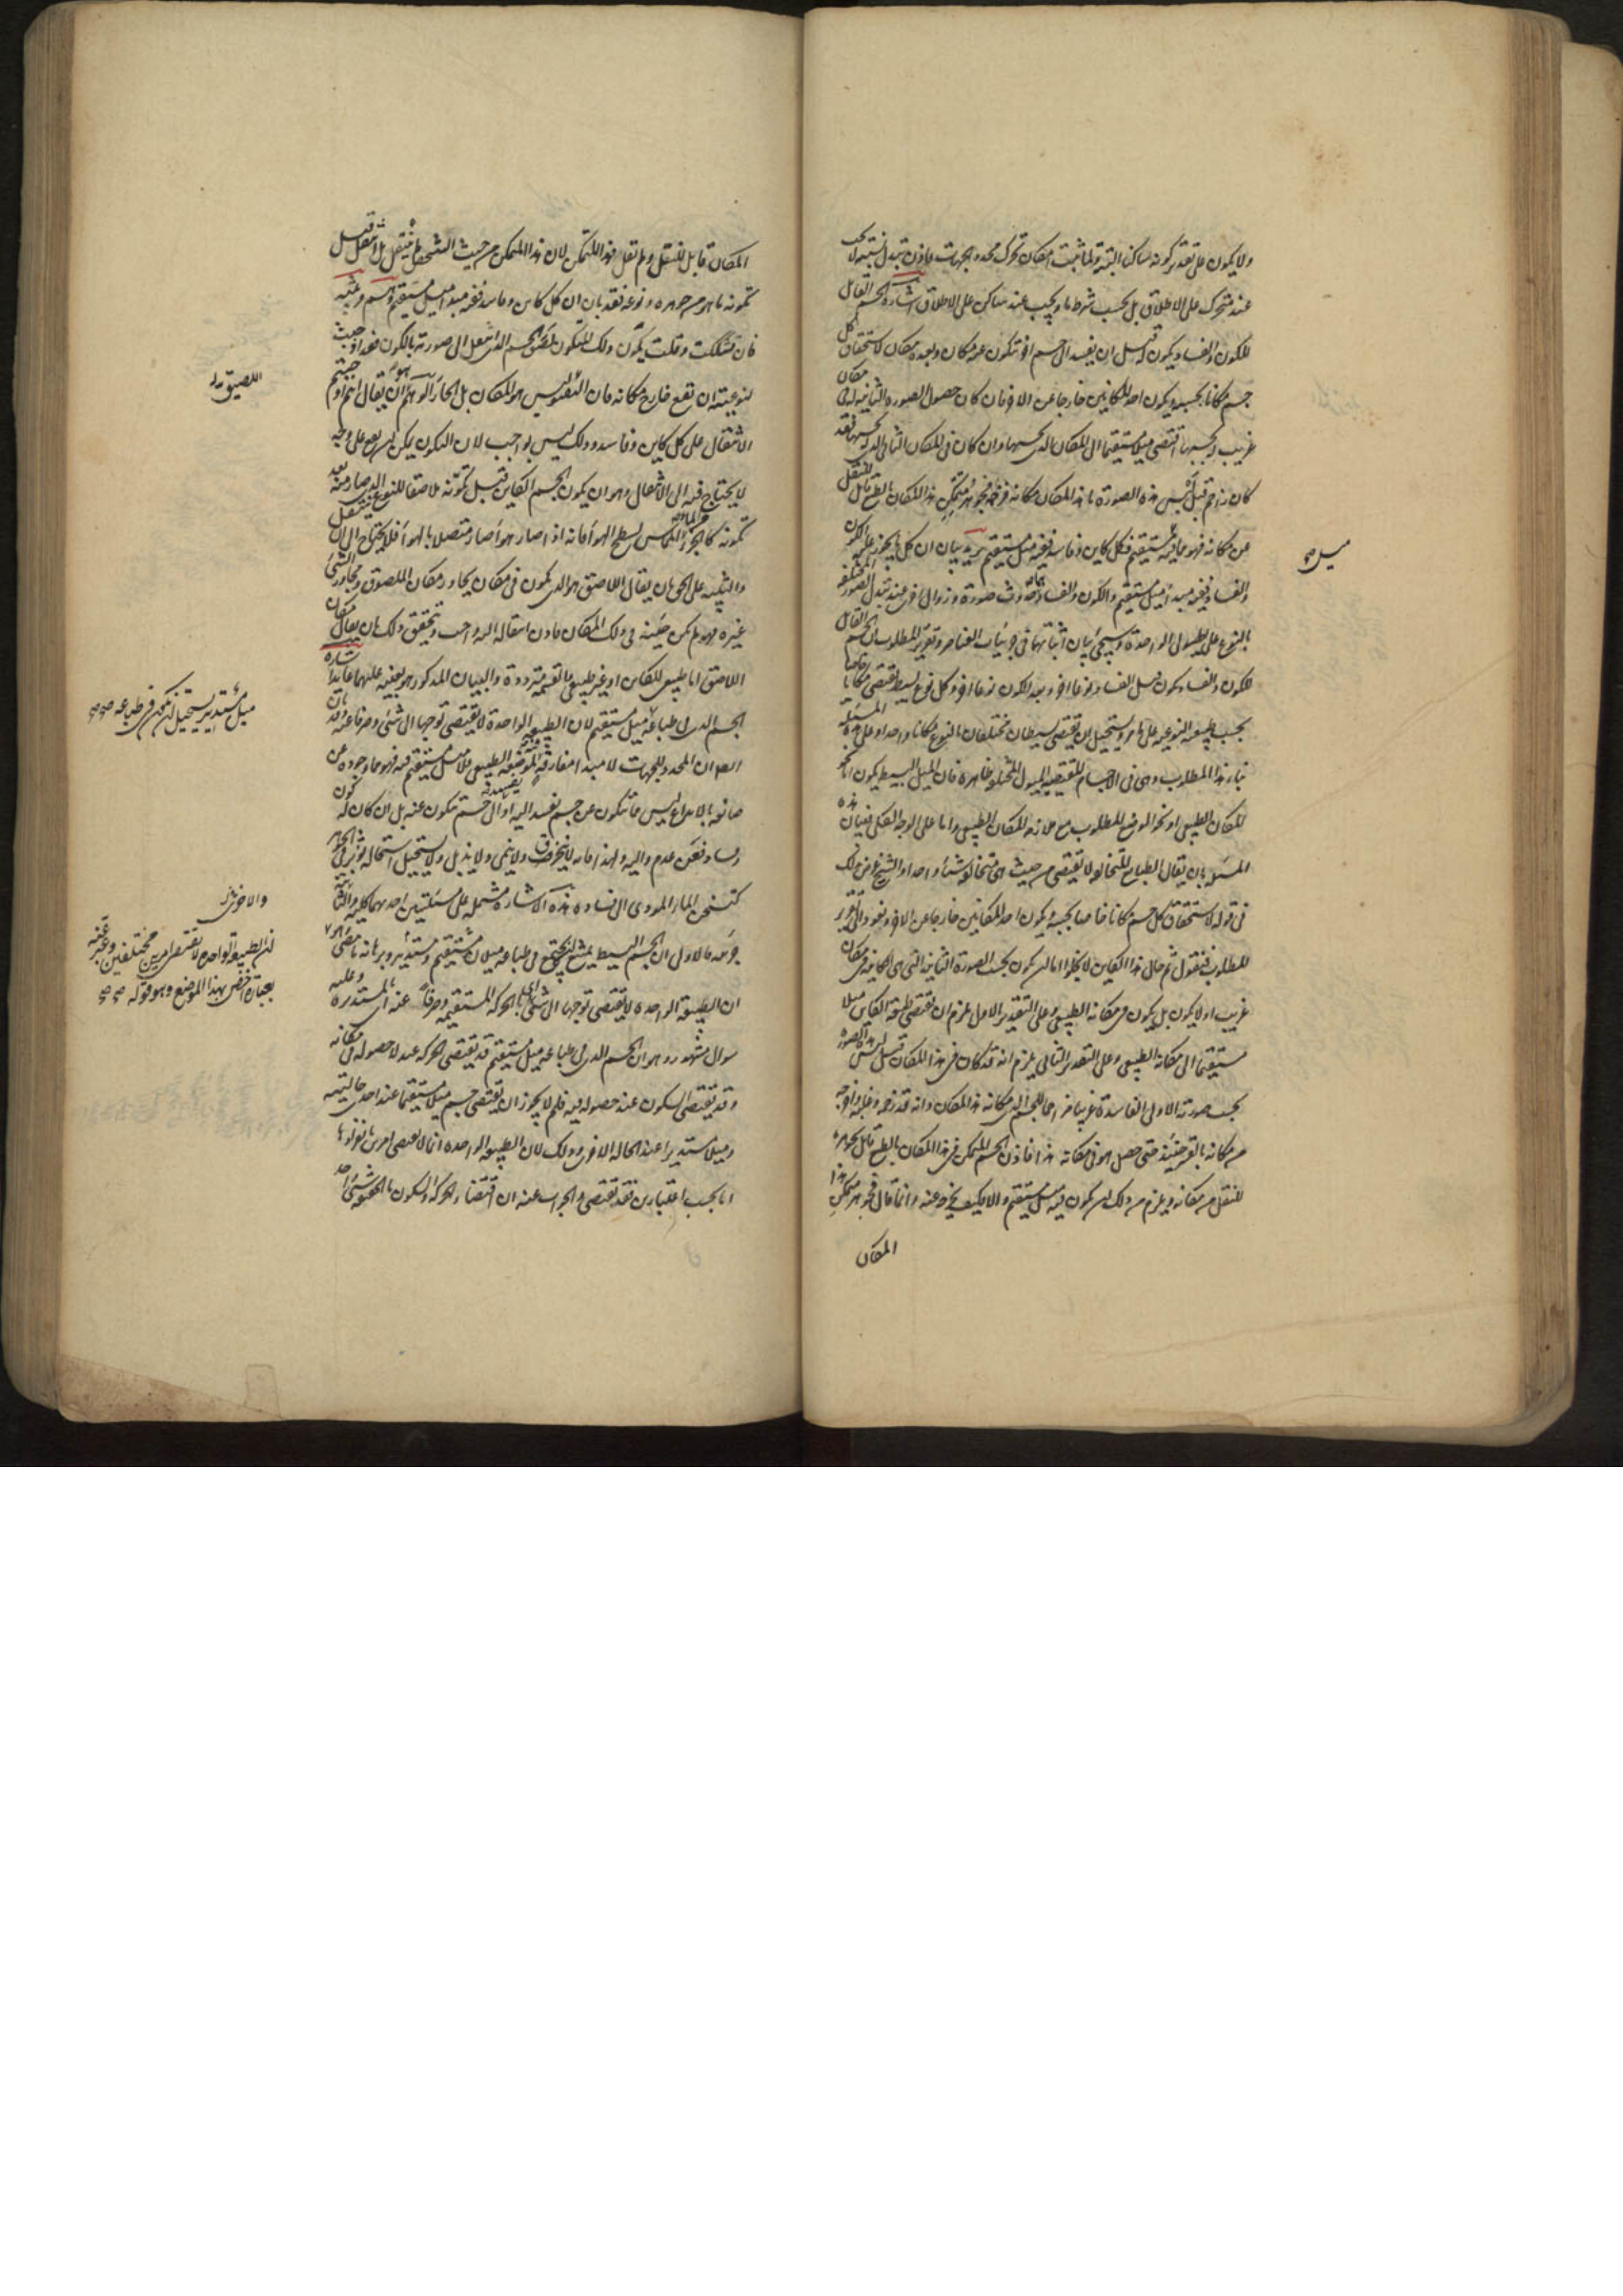 ولا يكون على تقدير كونه ساكنا البتة ولما ثبت امكان تحرك محدد الجهات فاذن تبدل نسبته لا يجب
عند متحرك على الاطلاق بل بحسب شرط ما ويجب عند ساكن على الاطلاق اشارة الجسم القابل
للكون والفساد يكون له قبل ان يفسد الى جسم اخر تكون عنه مكان وبعده مكان لاستحقاق كل
جسم مكانا بحسبه ويكون احد المكانين خارجا عن الاخر فان كان حصول الصورة الثانية له في مكان
غريب بحسبها اقتضى ميلا مستقيما الى المكان الذى بحسبها وان كان فى المكان الثانى الذى بحسبها فقد
كان زاحم قبل لبس هذه الصورة ما هذا المكان مكانه فزحمه فجوهر متمكن هذا المكان بالطبع قابل للنقل
عن مكانه فهو مما فيه ميل مستقيم فكل كاين وفاسد ففيه ميل مستقيم يريد بيان ان كل ما يجوز عليه الكون
والفساد ففيه مبدأ ميل مستقيم والكون والفساد حدوث صورة وزوال اخرى عند تبدل الصور المختلفة
بالنوع على الهيولى الواحدة وسيجئ بيان اثباتها فى جزئيات العناصر وتقرير المطلوب ان الجسم القابل
للكون والفساد يكون قبل الفساد نوعا اخر وبعد الكون نوعا اخر وكل نوع بسيط يقتضى مكانا خاصا
بحسب طبيعته النوعية على ما مر ويستحيل ان يقتضى بسيطان مختلفان بالنوع مكانا واحدا وعلى هذه المسئلة
بناء هذا المطلوب وهى فى الاجسام المقتضية للميول المختلفة ظاهرة فان الميل البسيط يكون اما نحو
المكان الطبيعى او نحو الوضع المطلوب مع ملازمة المكان الطبيعى واما على الوجه الكلى فبيان هذه
المسئلة بان يقال الطبايع المتخالفة لا تقتضى من حيث هى متخالفة شيئا واحدا والشيخ عرض ذلك
فى قوله لاستحقاق كل جسم مكانا خاصا بحسبه ويكون احد المكانين خارجا عن الاخر ونعود الى تقرير
للمطلوب فنقول ثم حال هذا الكاين لا يخلوا اما ان يكون بحسب الصورة الثانية التى هى الكاينة فى مكان
غريب او لا يكون بل يكون فى مكانه الطبيعى وعلى التقدير الاول يلزم ان تقتضى طبيعة الكاين ميلا
مستقيما الى مكانه الطبيعى وعلى التقدير الثانى يلزم انه قد كان فى هذا المكان قبل لبس هذه الصورة
بحسب صورته الاولى الفاسدة غريبا مزاحما للجسم الذى مكانه هذا المكان وانه قد زحمه وغلبه واخرجه
من مكانه بالقسر حينئذ حتى حصل هو فى مكانه هذا فاذن الجسم المتمكن فى هذا المكان بالطبع قابل بجوهره
للنقل من مكانه ويلزم من ذلك ان يكون فيه ميل مستقيم والا فكيف يخرج عنه وانما قال فجوهر متمكن هذا
المكان
ميل صح
المكان قابل للنقل ولم يقل فهذا المتمكن لان هذا المتمكن من حيث الشخص لم ينتقل بل انتقل قبل
تكونه ما هو من جوهره ونوعه فقد بان ان كل كاين وفاسد ففيه مبدأ ميل مستقيم وهم وتنبيه
فان تشككت وقلت يكون ذلك المتكون لصق الجسم الذى انتقل الى صورته بالكون فقد اوجبت
لنوعيته ان تقع خارج مكانه فان ليس هو المكان بل الجار الوهم ان يقال انهم اوجبتم
الانتقال على كل كاين وفاسد وذلك ليس بواجب لان التكون يمكن ان يقع على وجه
لا يحتاج فيه الى الانتقال وهو ان يكون الجسم الكاين قبل تكونه ملاصقا للنوع الذى صار منه بعد
تكونه كالجزء من الماء المماس لسطح الهواء فانه اذا صار هواء صار متصلا بالهواء فلا يحتاج الى ان ينتقل
والتنبيه على الحق بان يقال اللاصق هو الذى يكون فى مكان يجاور مكان الملصوق ومجاور الشئ
غيره فهو لم يكن حينئذ فى ذلك المكان فاذن انتقاله اليه واجب وتحقيق ذلك بان يقال مكان
اللاصق اما طبيعى للكاين او غير طبيعى بالقسمة مترددة والبيان المذكور هو بعينه عليهما عائد اشارة
الجسم الذى فى طباعه ميل مستقيم لان الطبيعة الواحدة لا تقتضى توجها الى شئ وصرفا عنه وقد بان
ايضا ان المحدد للجهات لا مبدأ مفارقة فيه لموضعه الطبيعى فلا ميل مستقيم فيه فهو مما وجوده عن
صانعه بالابداع ليس مما يتكون عن جسم يفسد اليه او الى جسم يتكون عنه بل ان كان له كون
وفساد فعن عدم واليه ولهذا فانه لا ينخرق ولا ينمى ولا يذبل ولا يستحيل استحالة تؤثر فى الجوهر
كتسخن الماء المودى الى فساده هذه الاشارة مشتملة على مسئلتين احديهما كلية والثانية
جزئية فالاولى ان الجسم البسيط يمتنع ان يجتمع فى طباعه ميلان مستقيم ومستدير وبرهانه ما مضى
ان الطبيعة الواحدة لا تقتضى توجها الى شئ اى بالحركة المستقيمة وصرفا عنه اى بالمستديرة وعليه
سوال مشهور وهو ان الجسم الذى فى طباعه ميل مستقيم قد يقتضى الحركة عند لا حصوله فى مكانه
وقد يقتضى السكون عند حصوله فيه فلم لا يجوز ان يقتضى جسم ميلا مستقيما عند احدى حالتيه
وميلا مستديرا عند الحالة الاخرى وذلك لان الطبيعة الواحدة انما لا تقتضى امرين بانفرادها
اما بحسب اعتبارين فقد تقتضى والجواب عنه ان اقتضاء الحركة والسكون بالحقيقة شئ واحد
اللصيق
ميل مستدير يستحيل ان يكون فى طباعه صح
والاخرى
ان الطبيعة الواحدة لا تقتضى امرين مختلفين وعبر عنه
بعبارة اخص بهذا الموضع وهو قوله صح